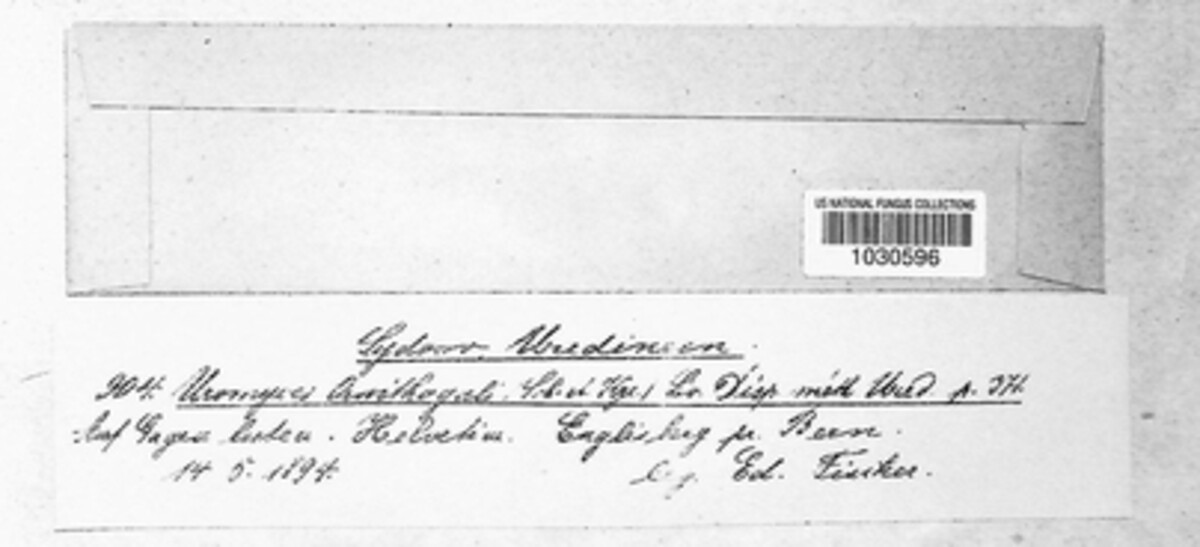 US NATIONAL FUNGUS COLLECTIONS
1030596
Sydow, Uredineen.
904. Uromyces Ornithogali Lv. Disp. méth. Ured. p. 371.
Auf Gagea lutea. Helvetia. Englisberg pr. Bern.
14. 5. 1894. leg. Ed. Fischer.